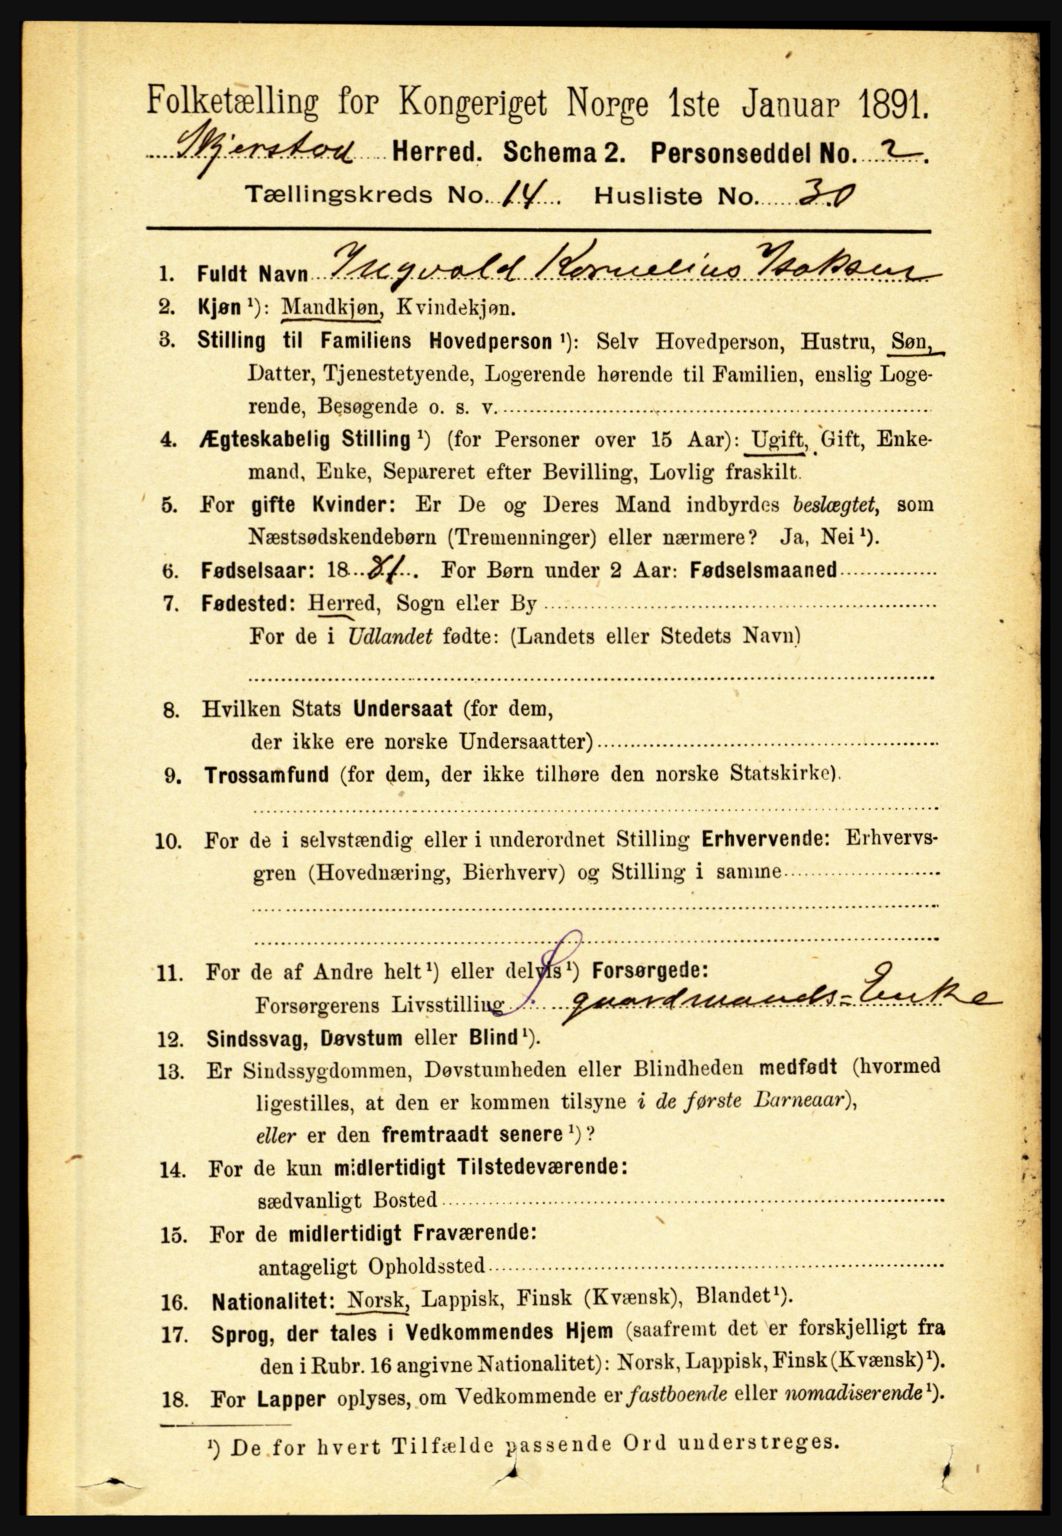 Folketælling for Kongeriget Norge 1ste Januar 1891.
Skjerstad Herred. Schema 2. Personseddel No. 2.
Tællingskreds No. 14. Husliste No. 30
1. Fuldt Navn Ingvald Kornelius Isaksen
2. Kjøn ¹): Mandkjøn, Kvindekjøn.
3. Stilling til Familiens Hovedperson ¹): Selv Hovedperson, Hustru, Søn,
Datter, Tjenestetyende, Logerende hørende til Familien, enslig Loge-
rende, Besøgende o. s. v.
4. Ægteskabelig Stilling ¹) (for Personer over 15 Aar): Ugift, Gift, Enke-
mand, Enke, Separeret efter Bevilling, Lovlig fraskilt.
5. For gifte Kvinder: Er De og Deres Mand indbyrdes beslægtet, som
Næstsødskendebørn (Tremenninger) eller nærmere? Ja, Nei ¹).
6. Fødselsaar: 1881. For Børn under 2 Aar: Fødselsmaaned
7. Fødested: Herred, Sogn eller By
For de i Udlandet fødte: (Landets eller Stedets Navn)
8. Hvilken Stats Undersaat (for dem,
der ikke ere norske Undersaatter)
9. Trossamfund (for dem, der ikke tilhøre den norske Statskirke).
10. For de i selvstændig eller i underordnet Stilling Erhvervende: Erhvervs-
gren (Hovednæring, Bierhverv) og Stilling i samme
11. For de af Andre helt ¹) eller delvis ¹) Forsørgede:
Forsørgerens Livsstilling gaardmands-Enke
12. Sindssvag, Døvstum eller Blind ¹).
13. Er Sindssygdommen, Døvstumheden eller Blindheden medfødt (hvormed
ligestilles, at den er kommen tilsyne i de første Barneaar),
eller er den fremtraadt senere ¹)?
14. For de kun midlertidigt Tilstedeværende:
sædvanligt Bosted
15. For de midlertidigt Fraværende:
antageligt Opholdssted
16. Nationalitet: Norsk, Lappisk, Finsk (Kvænsk), Blandet ¹).
17. Sprog, der tales i Vedkommendes Hjem (saafremt det er forskjelligt fra
den i Rubr. 16 angivne Nationalitet): Norsk, Lappisk, Finsk (Kvænsk) ¹).
18. For Lapper oplyses, om Vedkommende er fastboende eller nomadiserende ¹).
¹) De for hvert Tilfælde passende Ord understreges.